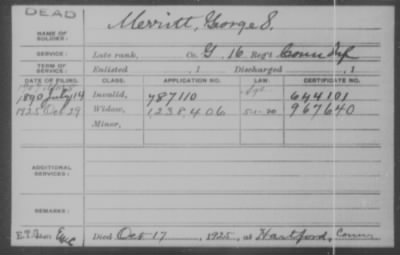 DEAD
NAME OF SOLDIER: Merritt, George S.
SERVICE: Late rank, Co. G, 16 Reg't Conn Inf
TERM OF SERVICE: Enlisted , 1 Discharged , 1
DATE OF FILING. CLASS. APPLICATION NO. LAW. CERTIFICATE NO.
1890 July 14 Invalid, 787110 644101
1925 Oct 29 Widow, 1238406 5-1-20 967640
Minor,
ADDITIONAL SERVICES:
REMARKS:
Died Oct 17, 1925, at Hartford, Conn